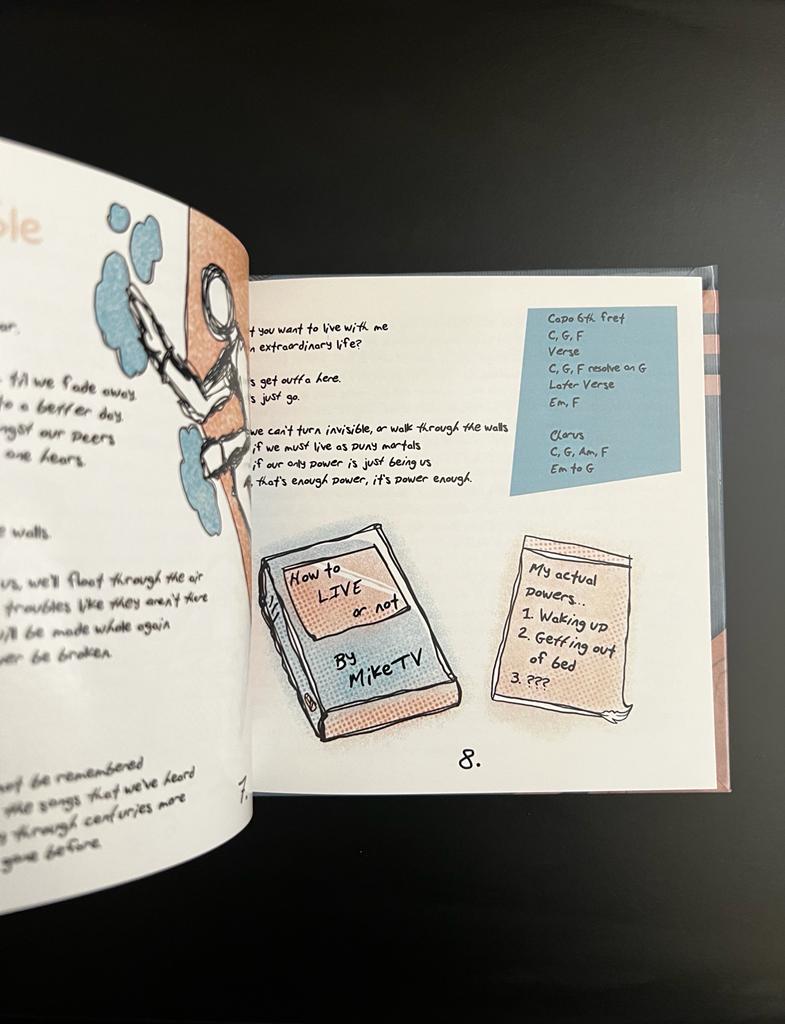 ble
ar.
till we fade away.
to a better day.
ngst our peers
one hears.
e walls.
us, we'll float through the air
troubles like they aren't there
'll be made whole again
ver be broken.
not be remembered
the songs that we've heard
y through centuries more
gone before.
7.
t you want to live with me
n extraordinary life?
s get outta here.
s just go.
we can't turn invisible, or walk through the walls
if we must live as puny mortals
if our only power is just being us
, that's enough power, it's power enough.
Capo 6th fret
C, G, F
Verse
C, G, F resolve on G
Later Verse
Em, F
Chorus
C, G, Am, F
Em to G
How to
LIVE
or not
By
MikeTV
My actual
powers...
1. Waking up
2. Getting out
of bed
3. ???
8.